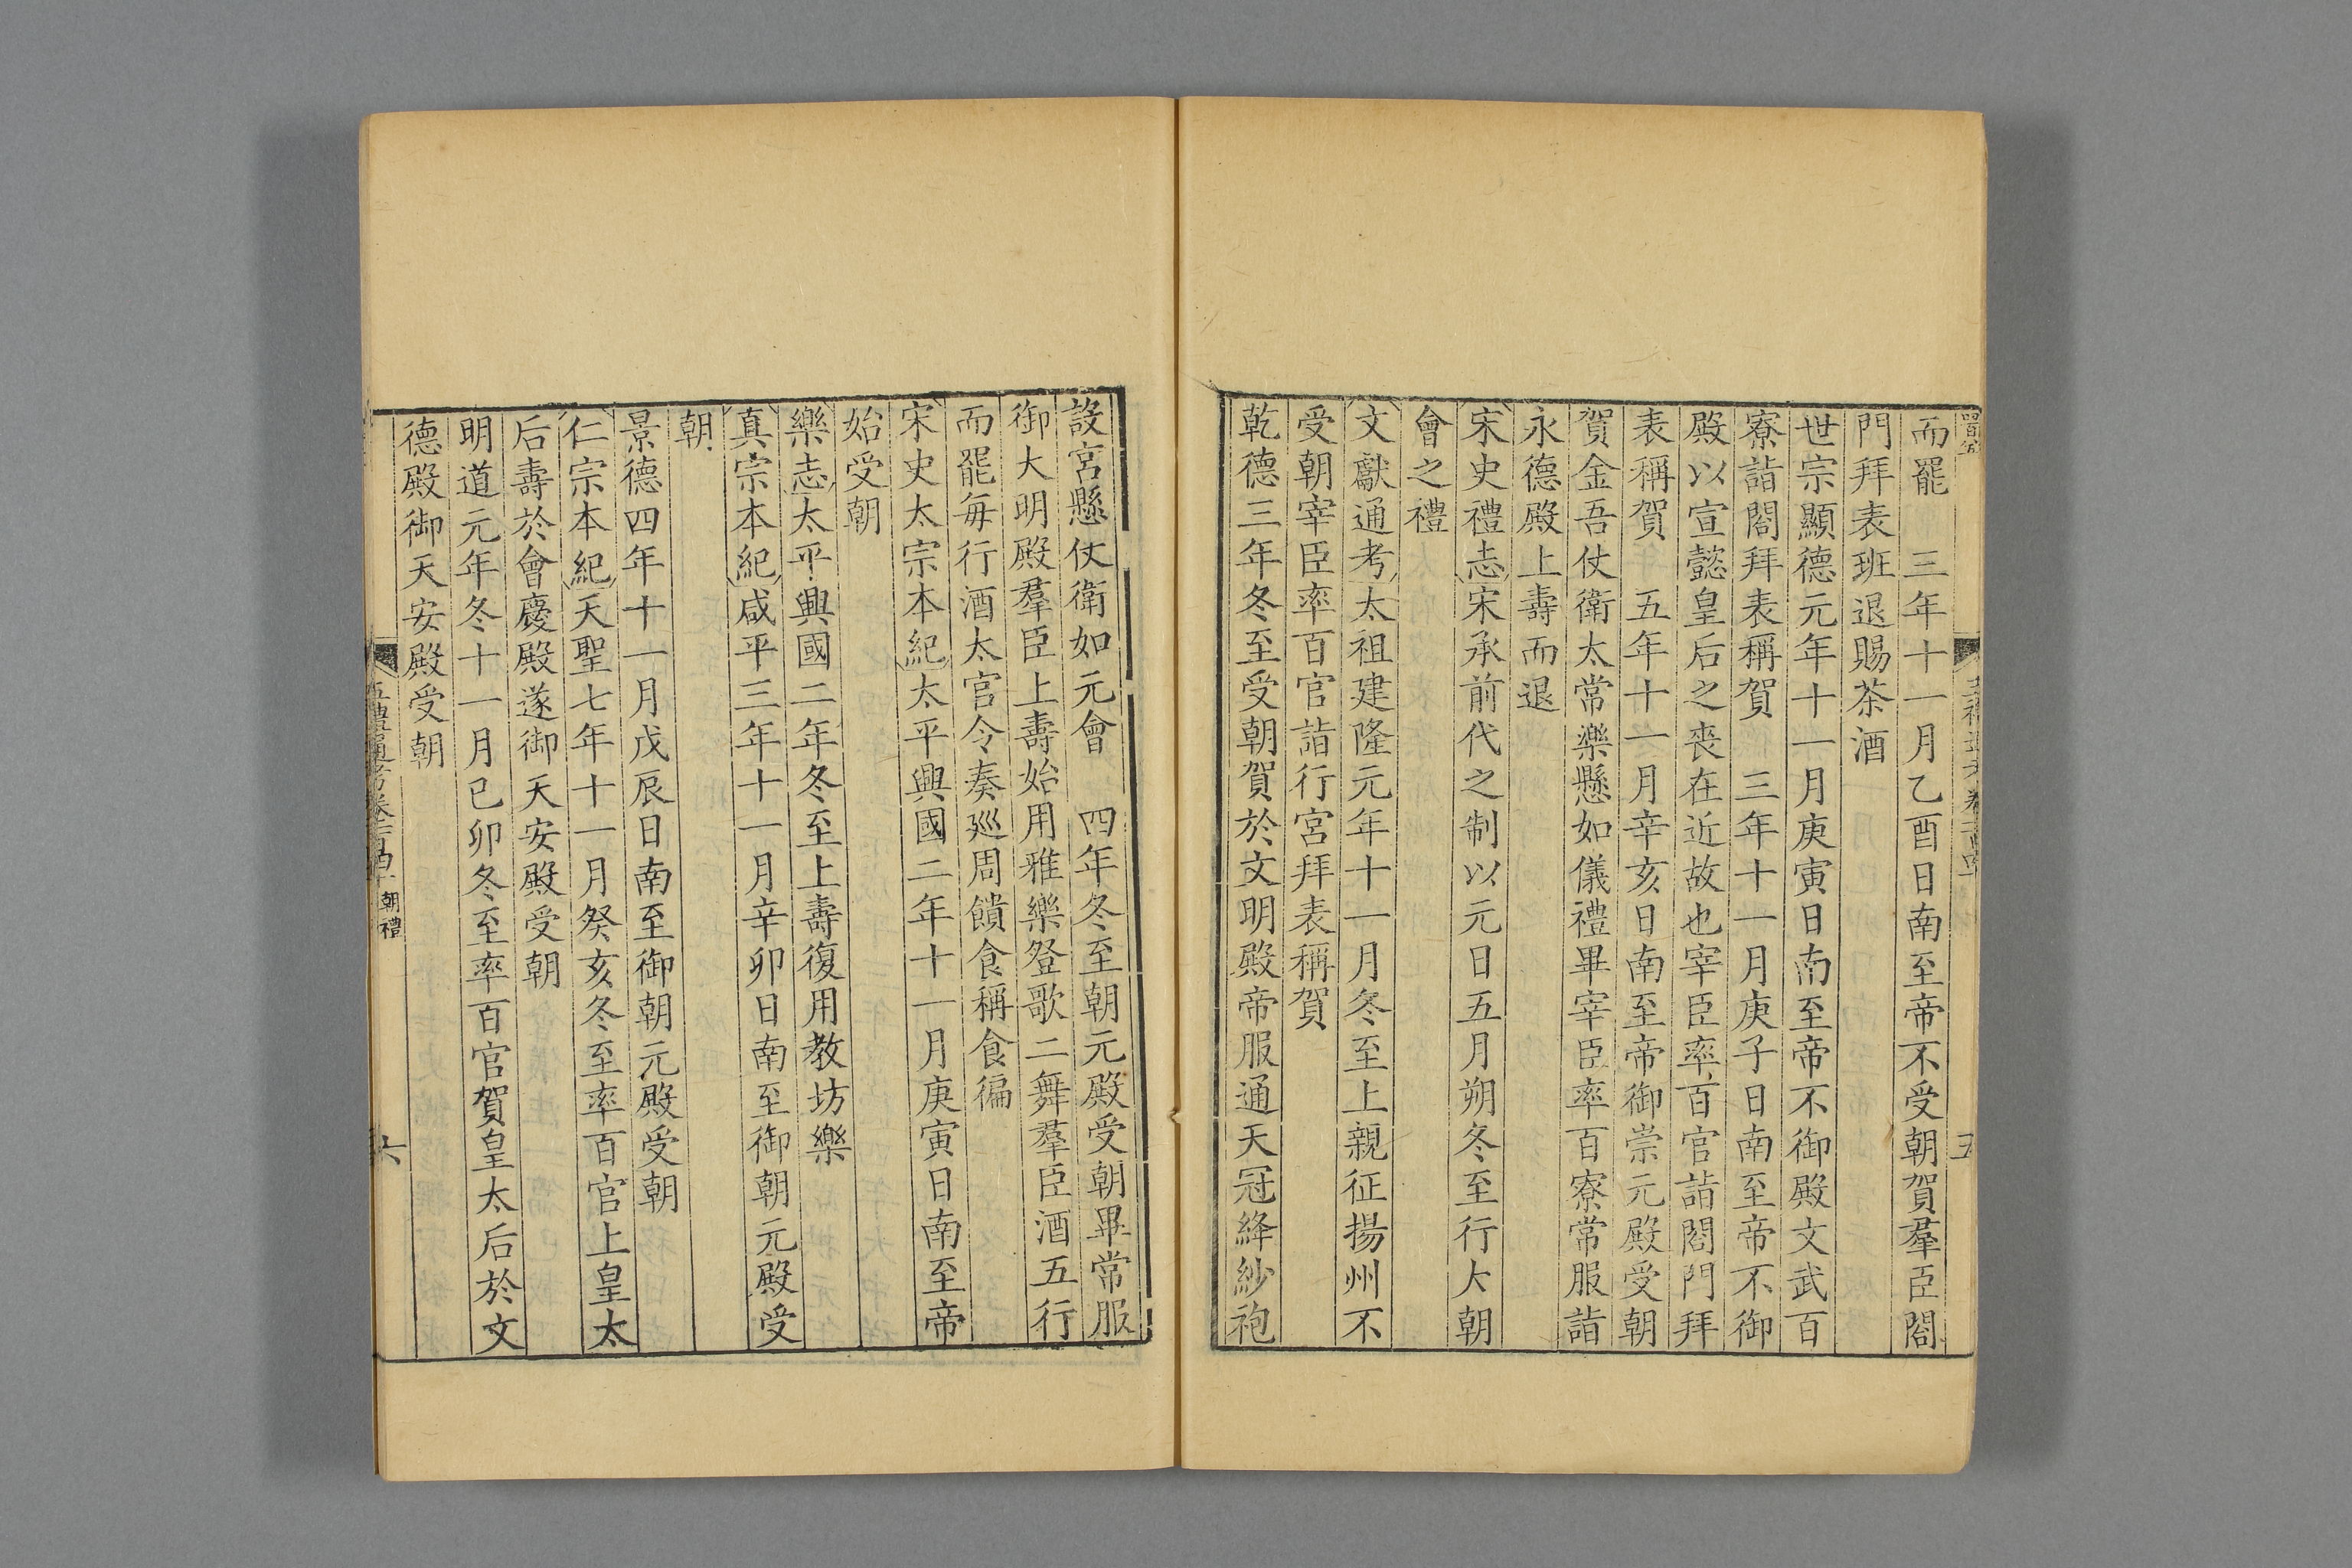 而罷　三年十一月乙酉日南至帝不受朝賀羣臣閤
門拜表班退賜茶酒
世宗顯德元年十一月庚寅日南至帝不御殿文武百
寮詣閤拜表稱賀　三年十一月庚子日南至帝不御
殿以宣懿皇后之喪在近故也宰臣率百官詣閤門拜
表稱賀　五年十一月辛亥日南至帝御崇元殿受朝
賀金吾仗衛太常樂懸如儀禮畢宰臣率百寮常服詣
永德殿上壽而退
宋史禮志宋承前代之制以元日五月朔冬至行大朝
會之禮
文獻通考太祖建隆元年十一月冬至上親征揚州不
受朝宰臣率百官詣行宮拜表稱賀
乾德三年冬至受朝賀於文明殿帝服通天冠絳紗袍
設宮懸仗衛如元會　四年冬至朝元殿受朝畢常服
御大明殿羣臣上壽始用雅樂登歌二舞羣臣酒五行
而罷每行酒太官令奏巡周饋食稱食徧
宋史太宗本紀太平興國二年十一月庚寅日南至帝
始受朝
樂志太平興國二年冬至上壽復用教坊樂
真宗本紀咸平三年十一月辛卯日南至御朝元殿受
朝
景德四年十一月戊辰日南至御朝元殿受朝
仁宗本紀天聖七年十一月癸亥冬至率百官上皇太
后壽於會慶殿遂御天安殿受朝
明道元年冬十一月己卯冬至率百官賀皇太后於文
德殿御天安殿受朝
朝禮
六